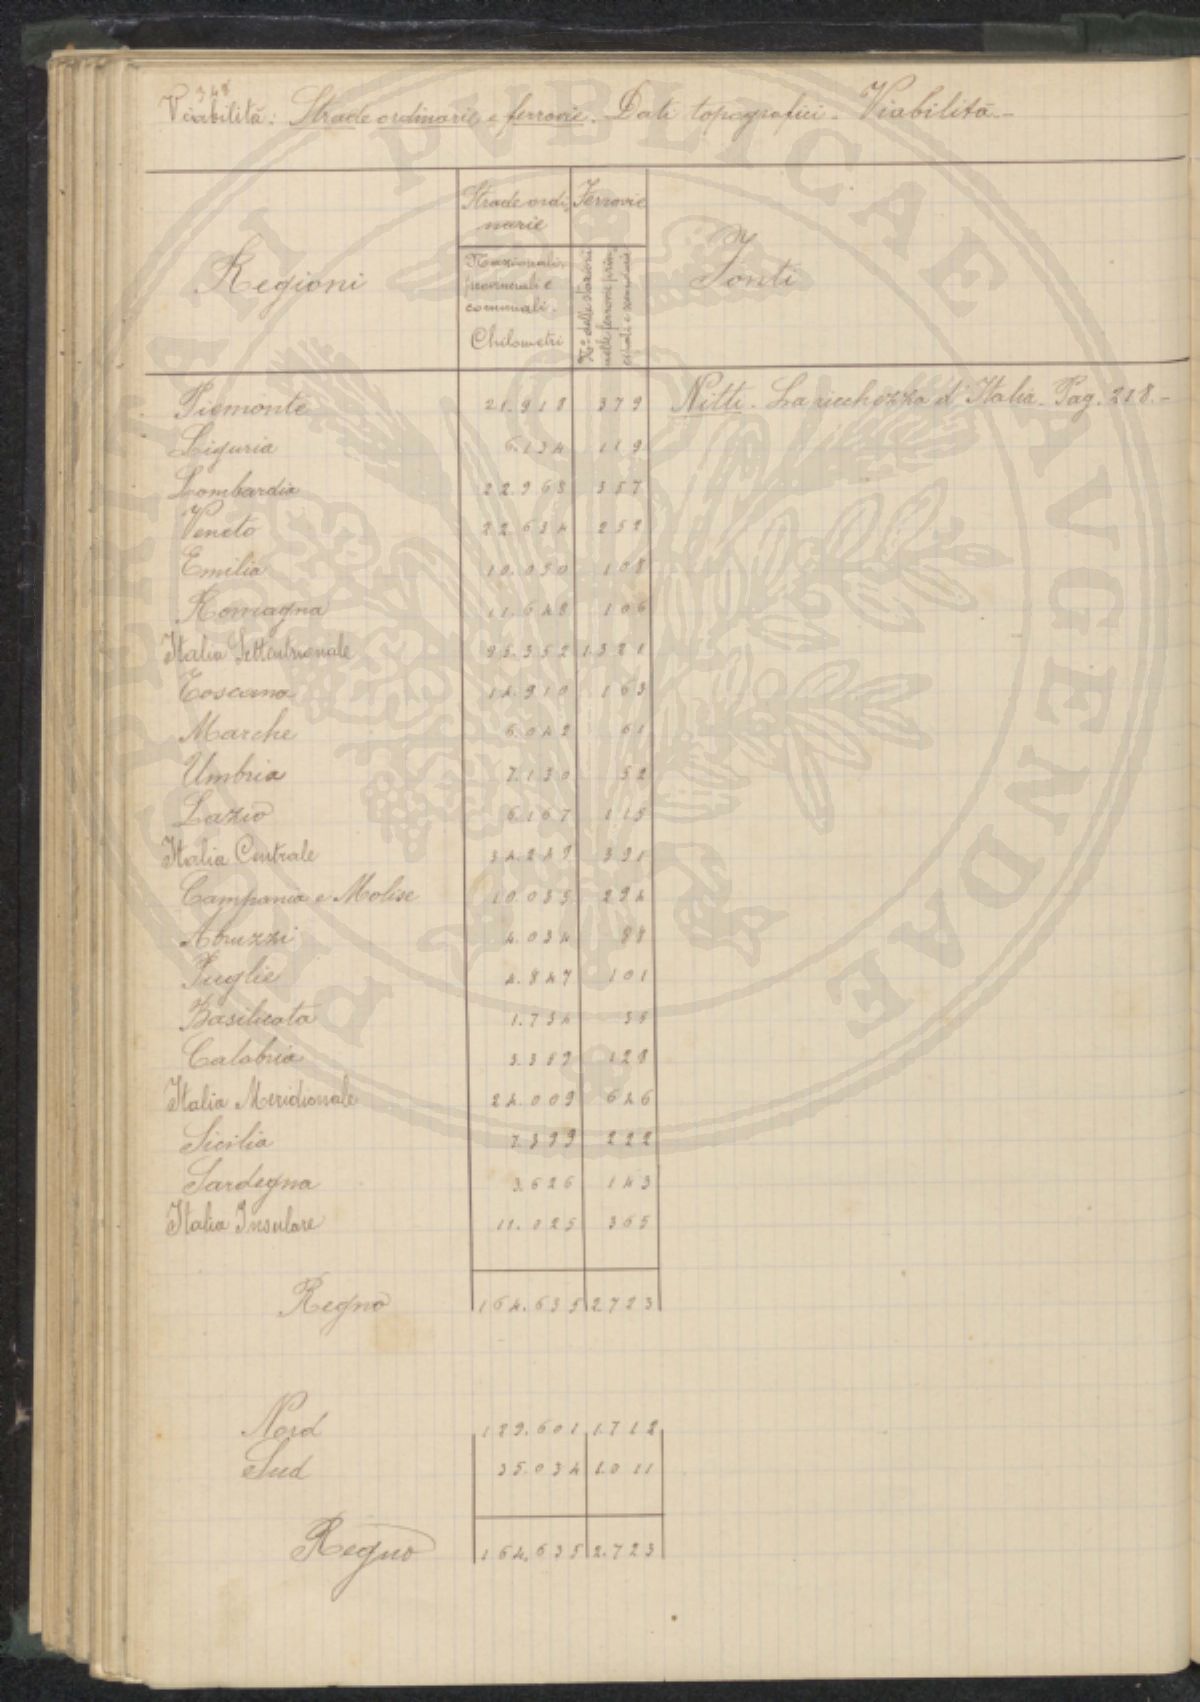 348
Viabilità: Strade ordinarie e ferrovie. Dati topografici. Viabilità.-
Regioni
Strade ordi-
narie
Ferrovie
Nazionali,
provinciali e
comunali.
Chilometri
N.º delle stazioni
nelle ferrovie prin-
cipali e secondarie
Fonti
Piemonte 21.918 379 Nitti. La ricchezza d'Italia. Pag. 218.-
Liguria 6.134 119
Lombardia 22.968 357
Veneto 22.634 252
Emilia 10.050 108
Romagna 11.648 106
Italia Settentrionale 95.352 1.321
Toscana 14.910 163
Marche 6.042 61
Umbria 7.130 52
Lazio 6.167 115
Italia Centrale 34.249 391
Campania e Molise 10.035 294
Abruzzi 4.034 88
Puglie 4.847 101
Basilicata 1.734 35
Calabria 3.359 128
Italia Meridionale 24.009 646
Sicilia 7.399 222
Sardegna 3.626 143
Italia Insulare 11.025 365
Regno 164.635 2723
Nord 129.601 1.712
Sud 35.034 1.011
Regno 164.635 2.723
PROSPERITATI PVBLICAE AVGENDAE